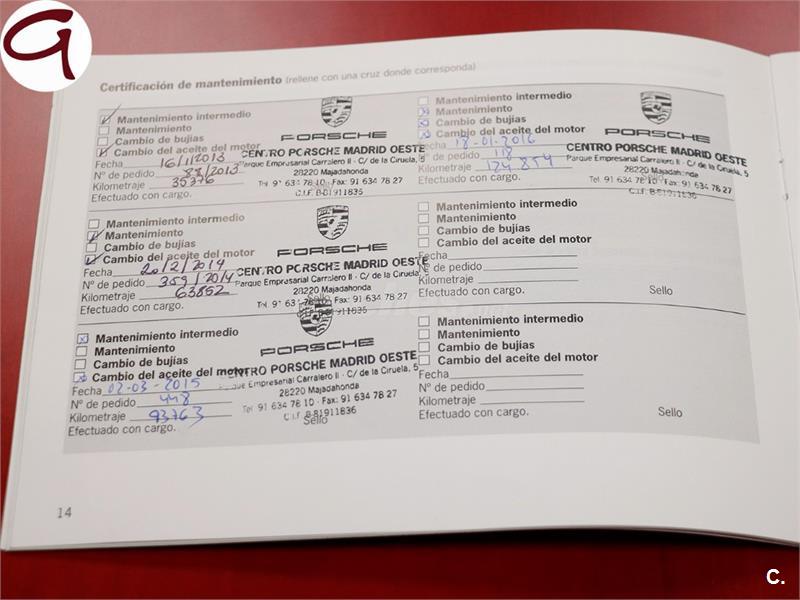 Certificación de mantenimiento (rellene con una cruz donde corresponda)
Mantenimiento intermedio
Mantenimiento
Cambio de bujías
Cambio del aceite del motor
Fecha 16/1/2013
Nº de pedido 88/2013
Kilometraje 35376
Efectuado con cargo.
PORSCHE
CENTRO PORSCHE MADRID OESTE
Parque Empresarial Carralero II - C/ de la Ciruela, 5
28220 Majadahonda
Tel. 91 634 78 10 - Fax: 91 634 78 27
C.I.F. B-81911836
Mantenimiento intermedio
Mantenimiento
Cambio de bujías
Cambio del aceite del motor
Fecha 20/2/2014
Nº de pedido 359/2014
Kilometraje 63852
Efectuado con cargo.
Sello
PORSCHE
CENTRO PORSCHE MADRID OESTE
Parque Empresarial Carralero II - C/ de la Ciruela,
28220 Majadahonda
Tel. 91 634 78 10 - Fax: 91 634 78 27
C.I.F. B-81911836
Mantenimiento intermedio
Mantenimiento
Cambio de bujías
Cambio del aceite del motor
Fecha 02-03-2015
Nº de pedido 448
Kilometraje 93763
Efectuado con cargo.
Sello
PORSCHE
CENTRO PORSCHE MADRID OESTE
Parque Empresarial Carralero II - C/ de la Ciruela, 5
28220 Majadahonda
Tel. 91 634 78 10 - Fax: 91 634 78 27
C.I.F. B-81911836
Mantenimiento intermedio
Mantenimiento
Cambio de bujías
Cambio del aceite del motor
Fecha 18-01-2016
Nº de pedido 118
Kilometraje 124854
Efectuado con cargo.
Sello
PORSCHE
CENTRO PORSCHE MADRID OESTE
Parque Empresarial Carralero II - C/ de la Ciruela, 5
28220 Majadahonda
Tel. 91 634 78 10 - Fax: 91 634 78 27
C.I.F. B-81911836
Mantenimiento intermedio
Mantenimiento
Cambio de bujías
Cambio del aceite del motor
Fecha
Nº de pedido
Kilometraje
Efectuado con cargo.
Sello
Mantenimiento intermedio
Mantenimiento
Cambio de bujías
Cambio del aceite del motor
Fecha
Nº de pedido
Kilometraje
Efectuado con cargo.
Sello
14
C.